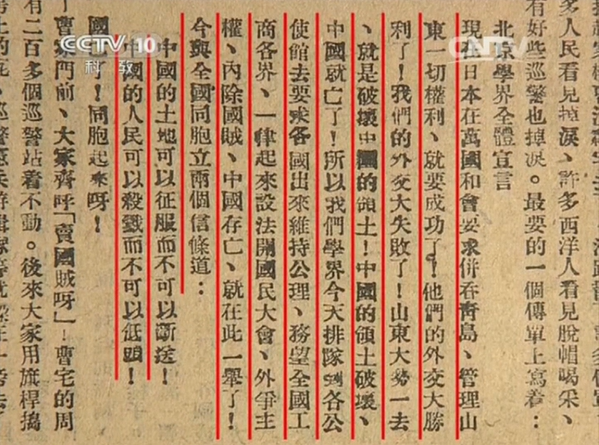 CCTV 10
科教
CNTV
多人民看見掉淚、許多西洋人看見脫帽喝采、
有好些巡警也掉淚。最要的一個傳單上寫着：
北京學界全體宣言
現在日本在萬國和會要求併吞青島、管理山
東一切權利、就要成功了！他們的外交大勝
利了！我們的外交大失敗了！山東大勢一去
、就是破壞中國的領土！中國的領土破壞、
中國就亡了！所以我們學界今天排隊到各公
使館去要求各國出來維持公理、務望全國工
商各界、一律起來設法開國民大會、外爭主
權、內除國賊、中國存亡、就在此一舉了！
今與全國同胞立兩個信條道：
中國的土地可以征服而不可以斷送！
中國的人民可以殺戮而不可以低頭！
國！同胞起來呀！
門前、大家齊呼「賣國賊呀」！曹宅的周
有二百多個巡警站着不動。後來大家用旗桿搗